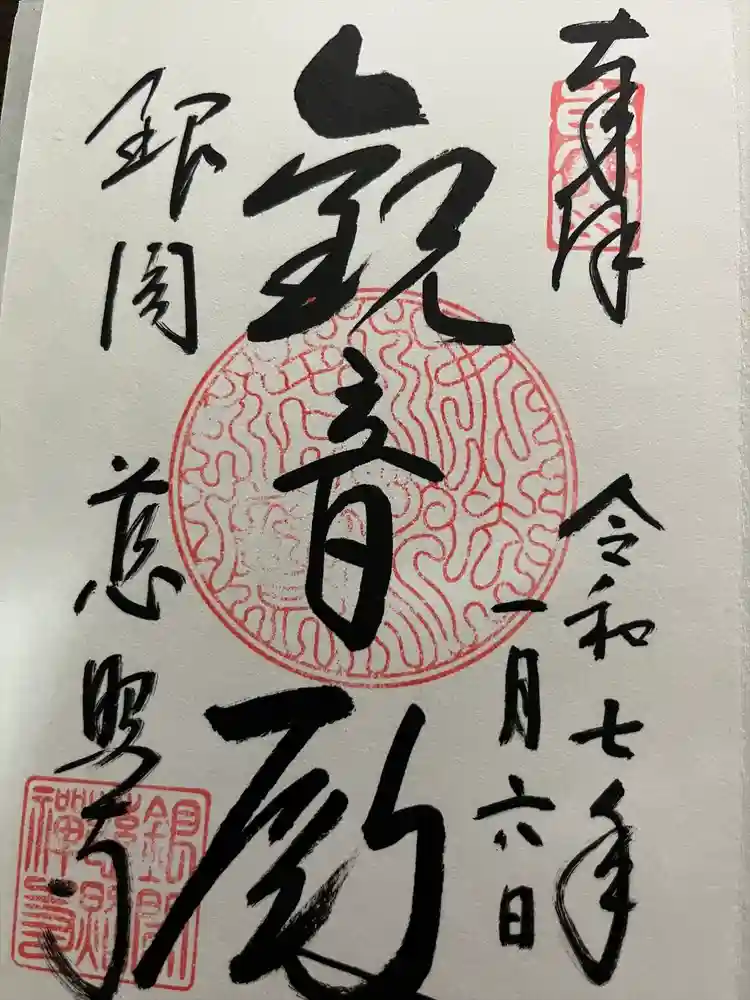 奉拝
令和七年
一月六日
觀音殿
銀閣
慈照寺
銀閣
慈照
禅寺